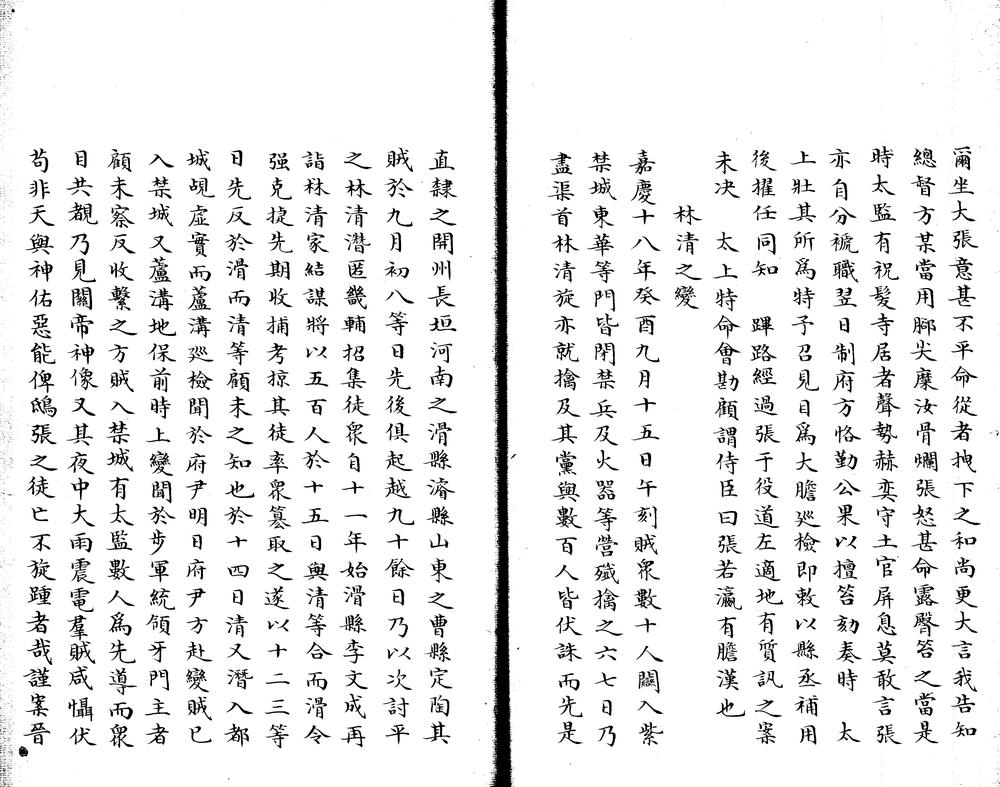 爾坐大張意甚不平命從者拽下之和尚更大言我告知
總督方某當用腳尖糜汝骨爛張怒甚命露臀笞之當是
時太監有祝髮寺居者聲勢赫奕守土官屏息莫敢言張
亦自分褫職翌日制府方恪勤公果以擅笞劾奏時　太
上壯其所為特予召見目為大膽廵檢即敕以縣丞補用
後擢任同知　蹕路經過張于役道左適地有質訊之案
未决　太上特命會勘顧謂侍臣曰張若瀛有膽漢也
林清之變
嘉慶十八年癸酉九月十五日午刻賊眾數十人闌入紫
禁城東華等門皆閉禁兵及火器等營殲擒之六七日乃
盡渠首林清旋亦就擒及其黨與數百人皆伏誅而先是
直隸之開州長垣河南之滑縣濬縣山東之曹縣定陶其
賊於九月初八等日先後俱起越九十餘日乃以次討平
之林清潛匿畿輔招集徒眾自十一年始滑縣李文成再
詣林清家結謀將以五百人於十五日與清等合而滑令
强克捷先期收捕考掠其徒率眾篡取之遂以十二三等
日先反於滑而清等顧未之知也於十四日清又潛入都
城覘虛實而蘆溝廵檢聞於府尹明日府尹方赴變賊已
入禁城又蘆溝地保前時上變聞於步軍統領牙門主者
顧未察反收繫之方賊入禁城有太監數人為先導而眾
目共覩乃見關帝神像又其夜中大雨震電羣賊咸懾伏
苟非天與神佑惡能俾鴟張之徒亡不旋踵者哉謹案晉